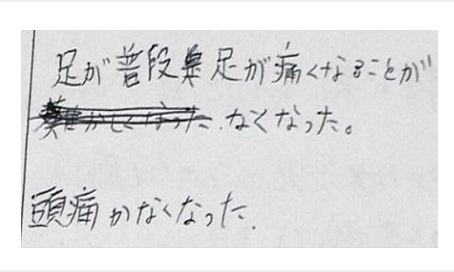 足が普段足が痛くなることが
なくなった。
頭痛がなくなった.